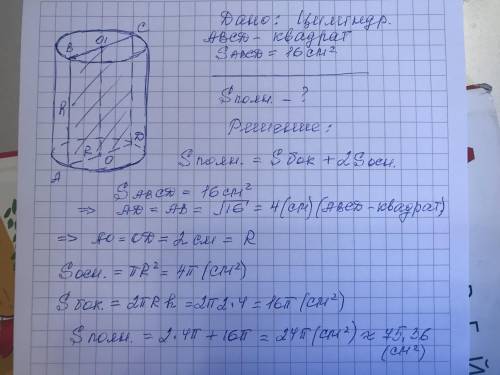 Дано: Цилиндр.
ABCD - квадрат
SABCD = 16 см²
Sполн. - ?
Решение:
Sполн. = Sбок + 2Sосн.
SABCD = 16 см²
=> AD = AB = √16 = 4 (см) (ABCD - квадрат)
=> AO = OD = 2 см = R
Sосн. = πR² = 4π (см²)
Sбок. = 2πRh = 2π2·4 = 16π (см²)
Sполн. = 2·4π + 16π = 24π (см²) ≈ 75,36
(см²)
B O₁ C
R
R O D
A